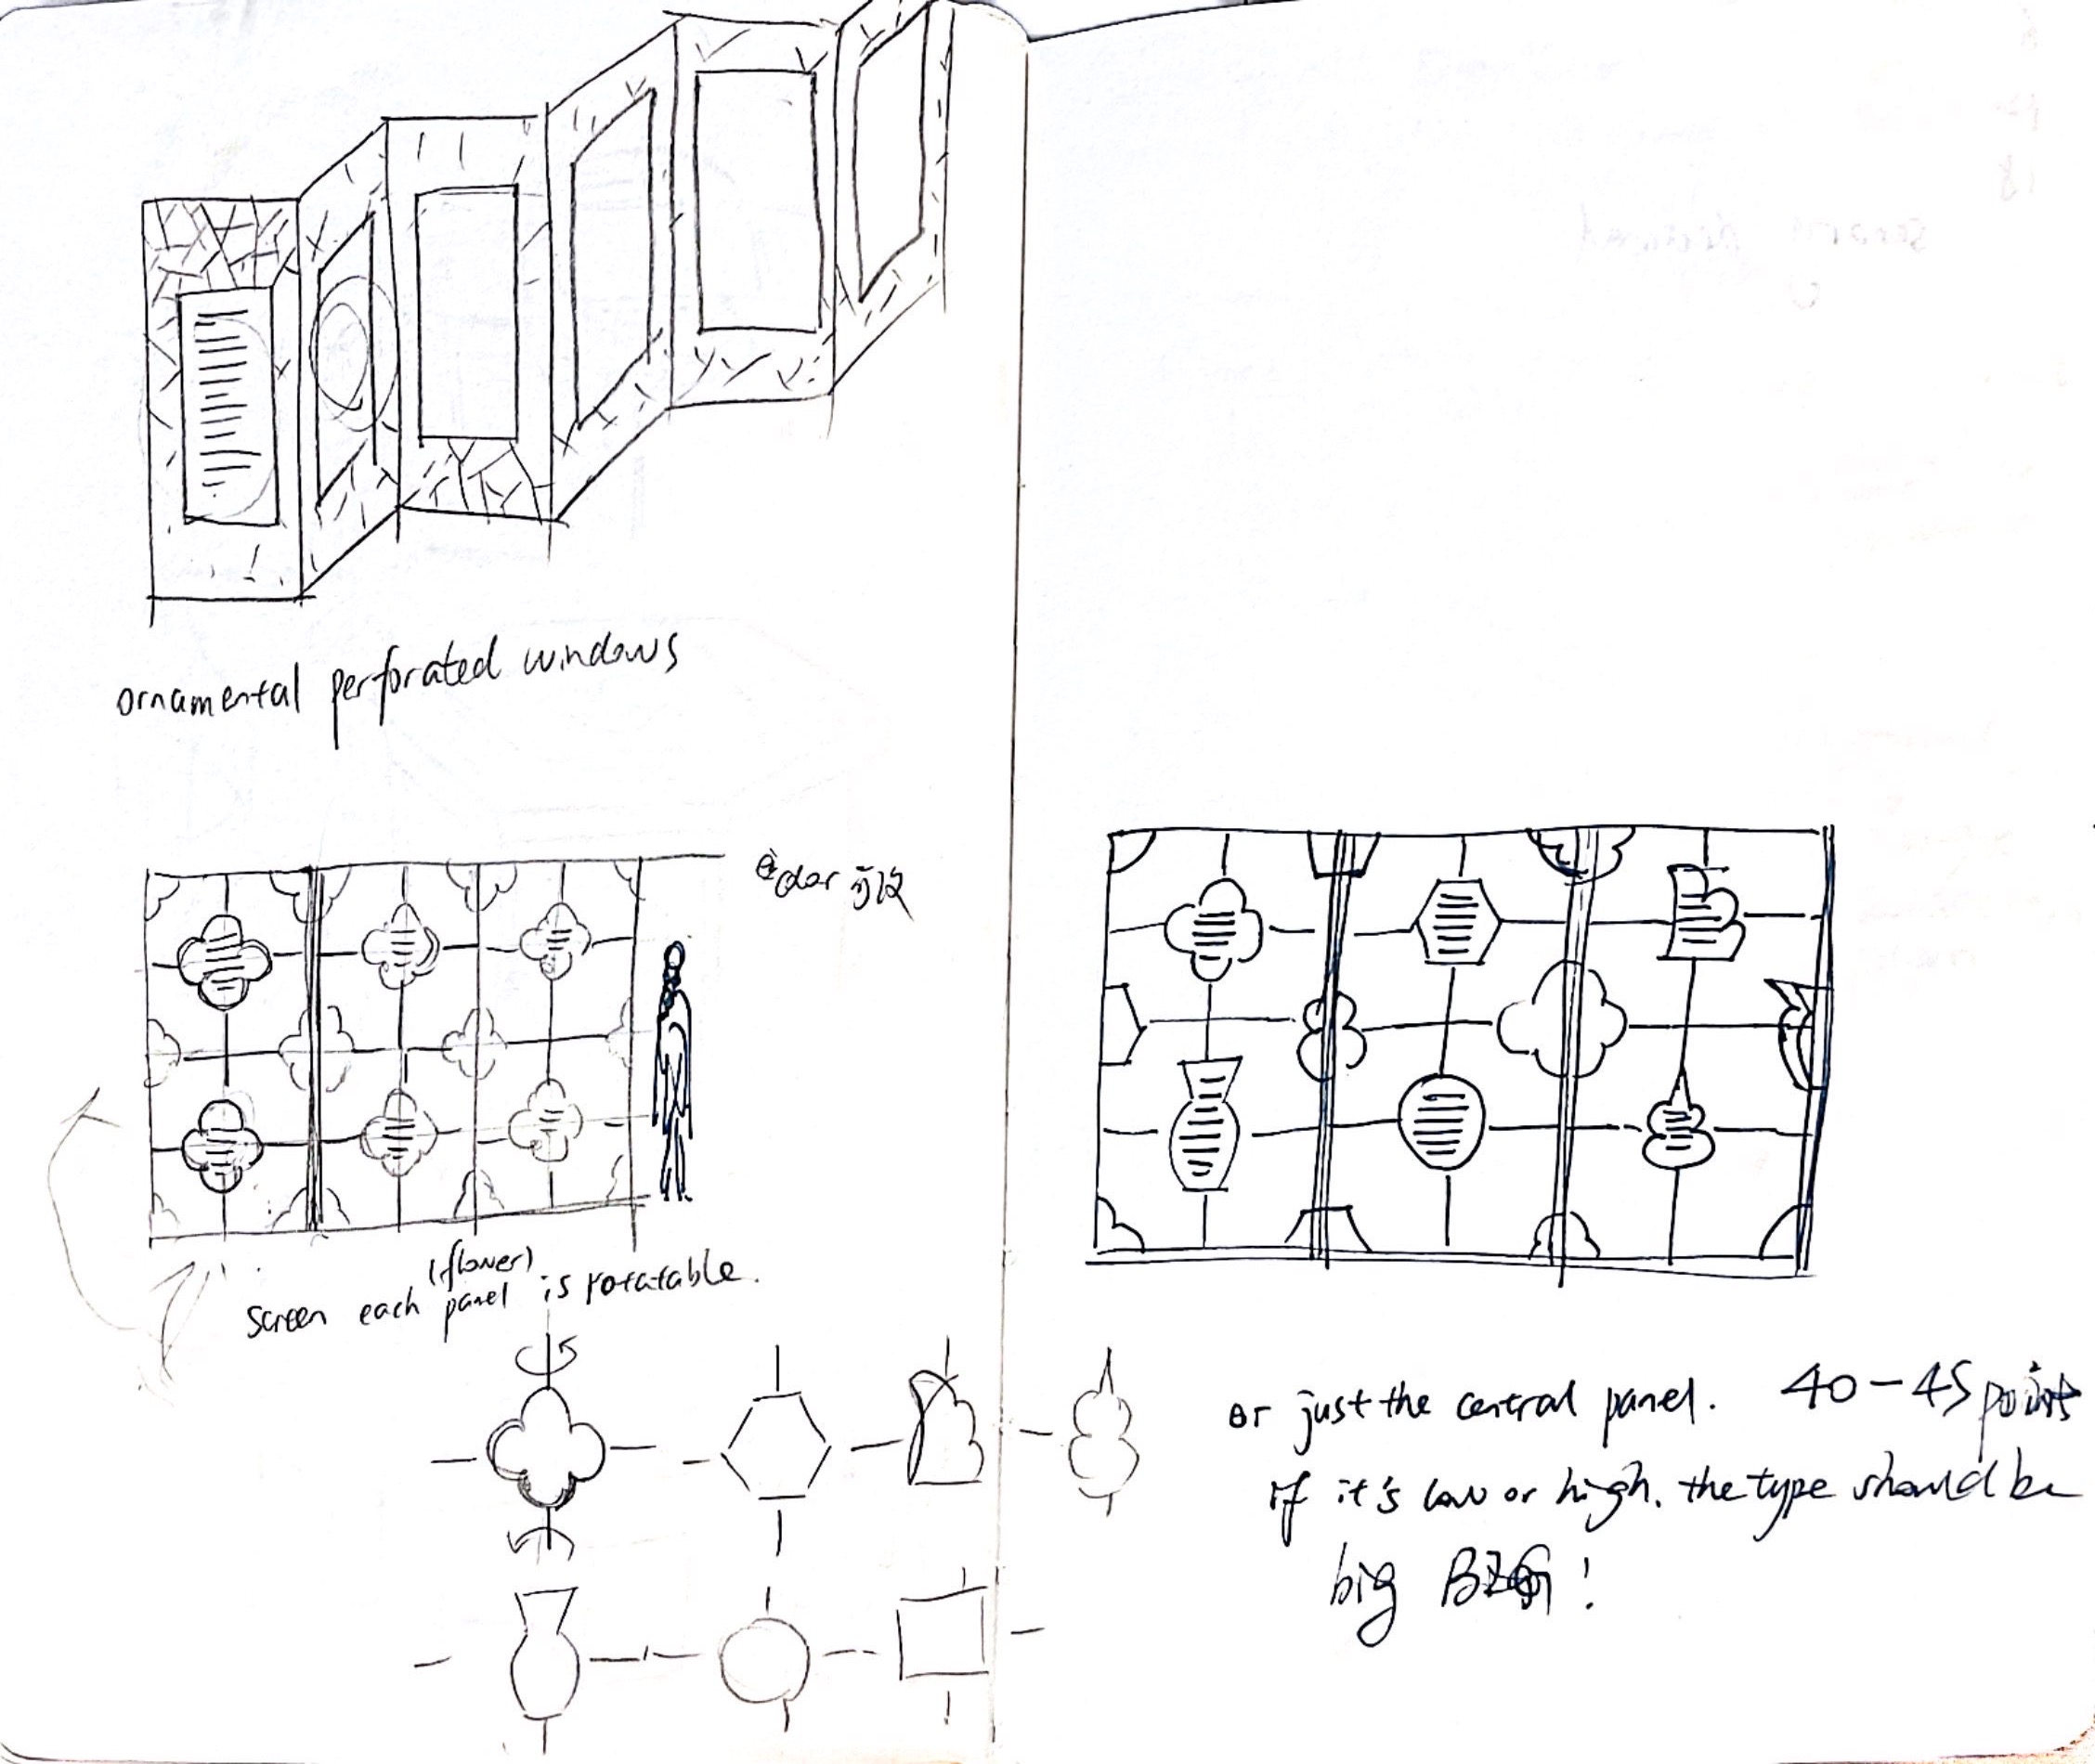 ornamental perforated windows
(flower)
screen each panel is rotatable.
or just the central panel. 40-45 points
if it's low or high. the type should be
big BIG!